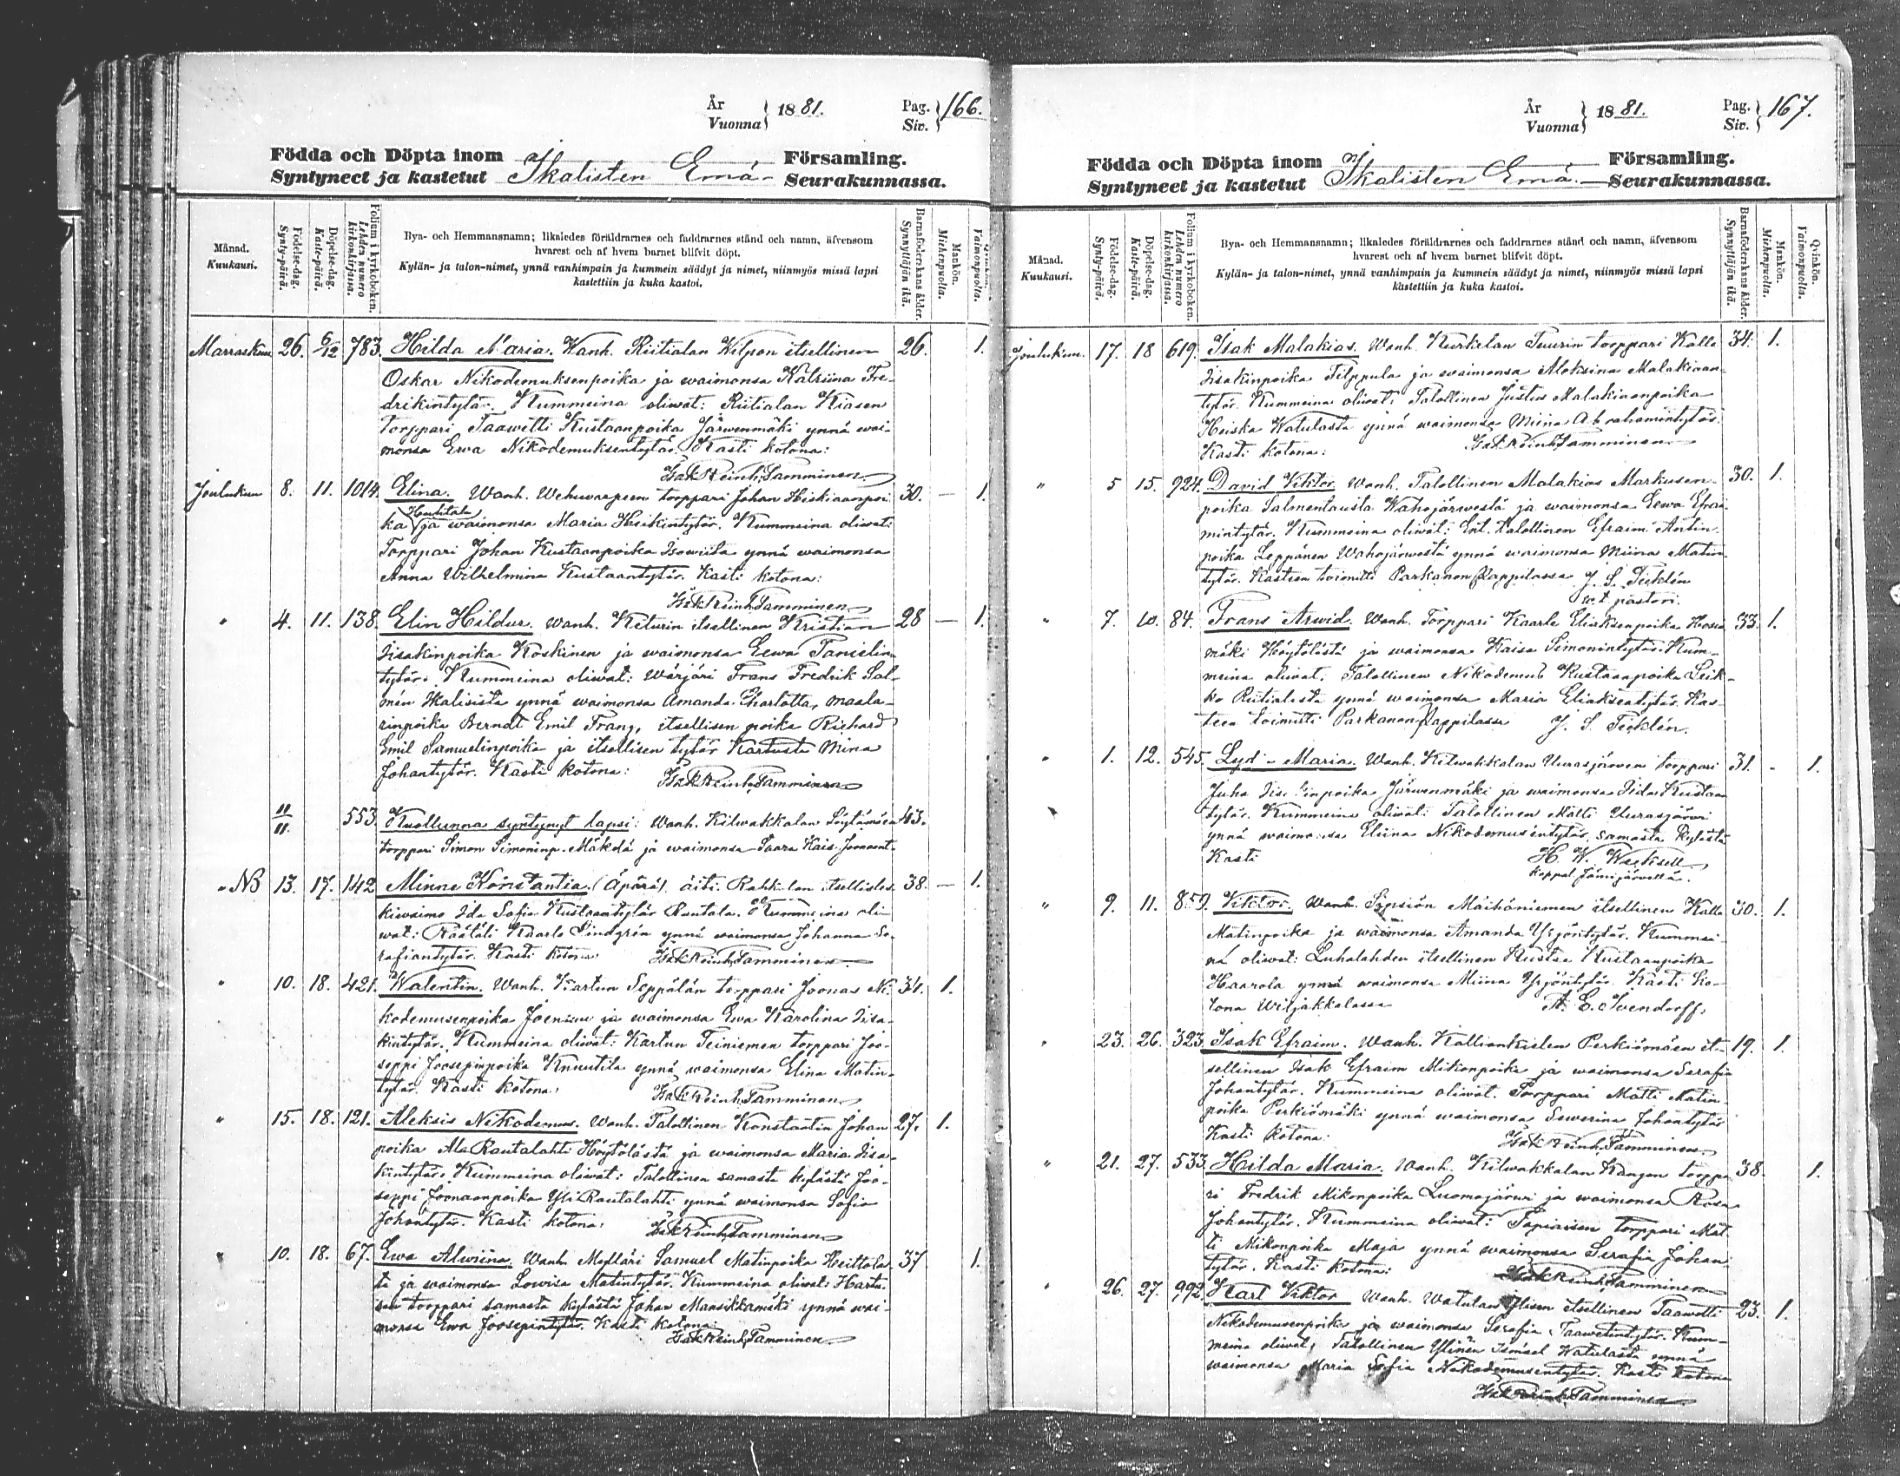 År
Vuonna } 1881.
Pag.
Siv. } 166.
Födda och Döpta inom Ikalisten Emä- Församling.
Syntyneet ja kastetut Seurakunnassa.
Månad.
Kuukausi.
Födelse-dag.
Synty-päivä.
Döpelse-dag.
Kaste-päivä.
Folium i kyrkoboken.
Lehden numero kirkonkirjassa.
Bya- och Hemmansnamn; likaledes föräldrarnes och faddrarnes stånd och namn, äfvensom
hvarest och af hvem barnet blifvit döpt.
Kylän- ja talon-nimet, ynnä vanhimpain ja kummein säädyt ja nimet, niinmyös missä lapsi
kastettiin ja kuka kastoi.
Barnaföderskans ålder.
Synnyttäjän ikä.
Mankön.
Miehenpuolta.
Vaimonpuolta.
Marraskuu 26. 6/12 783. Hilda Maria. Wanh. Riitialan Wilpon itsellinen 26. 1.
Oskar Nikodemuksenpoika ja waimonsa Katriina Fre-
drikintytär. Kummeina oliwat: Riitialan Kiasen
torppari Taawetti Kustaanpoika Järwenmäki ynnä wai-
monsa Ewa Nikodemuksentytär. Kasti kotona:
Isak Reinh. Tamminen
Joulukuu 8. 11. 1014. Elina. Wanh. torppari Johan Heiskiaanpoi- 30. — 1.
ka ja waimonsa Maria Heikintytär. Kummeina oliwat:
Torppari Johan Kustaanpoika ynnä waimonsa
Anna Wilhelmina Kustaantytär. Kasti kotona:
Isak Reinh. Tamminen
" 4. 11. 138. Elin Hildur. Wanh. Keturin itsellinen Kristian 28 — 1.
Iisakinpoika Koskinen ja waimonsa Eewa
tytär. Kummeina oliwat: Wärjäri Frans Fredrik Sal-
mén Ikalisista ynnä waimonsa Amanda Charlotta, maala-
rinpoika Berndt Emil Franz, itsellisen poika Richard
Emil Samuelinpoika ja itsellisen tytär Miina
Johantytär. Kasti kotona: Isak Reinh. Tamminen
11/11. 553. Kuolluna syntynyt lapsi: Wanh. Kilwakkalan 43.
torppari Simon Simoninp. Mäkelä ja waimonsa Saara Kais.
" NB 13. 17. 142 Minne Konstantia. (Äpärä) äiti. itsellis 38. — 1.
Ida Sofia Kustaantytär Rautala. Kummeina oli-
wat: Räätäli Kaarlo Lindgrén ynnä waimonsa Johanna Se-
rafiantytär. Kasti kotona: Isak Reinh. Tamminen
" 10. 18. 421. Walentin. Wanh. Kartun Seppälän torppari Joonas Ni- 34. 1.
kodemusenpoika ja waimonsa Ewa Karolina Iisa-
kintytär. Kummeina oliwat: Kartun Teiniemen torppari Joo-
seppi Joosepinpoika Knuutila ynnä waimonsa Elina Matin-
tytär. Kasti kotona: Isak Reinh. Tamminen
" 15. 18. 121. Aleksis Nikodemus. Wanh. Talollinen Konstantin Johan 27. 1.
poika Ala Rautalahti Höytölästä ja waimonsa Maria Iisa-
kintytär. Kummeina oliwat: Talollinen samasta kylästä Joo-
seppi Joonaanpoika Yli Rautalahti ynnä waimonsa Sofia
Johantytär. Kasti kotona: Isak Reinh. Tamminen
" 10. 18. 67. Ewa Alwiina. Wanh. Mylläri Samuel Matinpoika Heittola- 37 1.
sta ja waimonsa Lowisa Matintytär. Kummeina oliwat:
torppari samasta kylästä Johan Mansikkamäki ynnä wai-
monsa Ewa Joosepintytär. Kasti kotona:
Isak Reinh. Tamminen
År
Vuonna } 1881.
Pag.
Siv. } 167.
Födda och Döpta inom Ikalisten Emä. Församling.
Syntyneet ja kastetut Seurakunnassa.
Månad.
Kuukausi.
Födelse-dag.
Synty-päivä.
Döpelse-dag.
Kaste-päivä.
Folium i kyrkoboken.
Lehden numero kirkonkirjassa.
Bya- och Hemmansnamn; likaledes föräldrarnes och faddrarnes stånd och namn, äfvensom
hvarest och af hvem barnet blifvit döpt.
Kylän- ja talon-nimet, ynnä vanhimpain ja kummein säädyt ja nimet, niinmyös missä lapsi
kastettiin ja kuka kastoi.
Barnaföderskans ålder.
Synnyttäjän ikä.
Mankön.
Miehenpuolta.
Qvinkön.
Vaimonpuolta.
Joulukuu. 17. 18 619. Isak Malakias. Wanh. Kurkelan Tuurin torppari Kalle 34. 1.
Iisakinpoika Filppula ja waimonsa Malakiaan-
tytär. Kummeina oliwat: Talollinen Justus Malakiaanpoika
Heiska Watulasta ynnä waimonsa Miina Abrahamintytär.
Kasti kotona: Isak Reinh. Tamminen
" 5 15. 924. David Viktor. Wanh. Talollinen Malakias Markusen- 30. 1.
poika Salmentausta Wahojärwestä ja waimonsa Eewa Efrai-
mintytär. Kummeina oliwat: Ent. talollinen Efraim Antin-
poika Leppänen Wahojärwestä ynnä waimonsa Miina Matin
tytär. Kasteen toimitti Parkanon Kappelissa J. S. Ticklén
w.t. pastori.
" 7. 10. 84. Frans Arwid. Wanh. Torppari Kaarle Eliaksenpoika 33. 1.
mäki Höytölästä ja waimonsa Kaisa Simonintytär. Kum-
meina oliwat. Talollinen Nikodemus Kustaanpoika Leik-
ko Riitialasta ynnä waimonsa Maria Eliaksentytär. Kas-
teen toimitti Parkanon Kappelissa J. S. Ticklén.
" 1. 12. 545. Lyd - Maria. Wanh. Kilwakkalan Uurasjärwen torppari 31. - 1.
Juha Järwenmäki ja waimonsa Iida Kustaan
tytär. Kummeina oliwat: Talollinen Matti Uurasjärwi
ynnä waimonsa Eliina Nikodemusentytär, samasta kylästä
Kasti H. W.
kappal. Jämijärwellä.
" 9. 11. 859. Viktor. Wanh. Sipsiön itsellinen Kalle 30. 1.
Matinpoika ja waimonsa Amanda Yrjöntytär. Kummei-
na oliwat: Luhalahden itsellinen Kustaa Kustaanpoika
Haarola ynnä waimonsa Miina Yrjöntytär. Kasti Ko-
tona Wiljakkalassa A. E. Ivendorff.
" 23. 26. 323. Isak Efraim. Wanh. Kallionkielen Perkiömäen it- 19. 1.
sellinen Isak Efraim Mikonpoika ja waimonsa Serafia
Johantytär. Kummeina oliwat. Torppari Matti Matin-
poika Perkiömäki ynnä waimonsa Sewerina Johantytär
Kasti kotona: Isak Reinh. Tamminen
" 21. 27. 533. Hilda Maria. Wanh. Kilwakkalan torppa- 38. 1.
ri Fredrik Mikonpoika Luomajärwi ja waimonsa Rosa
Johantytär. Kummeina oliwat: torppari Mat-
ti Mikonpoika Maja ynnä waimonsa Serafia Johan
tytär. Kasti kotona: Isak Reinh. Tamminen
" 26. 27. 992. Karl Viktor Wanh. Watulan Ylisen itsellinen Taawetti 23. 1.
Nikodemusenpoika ja waimonsa Serafia Taawetintytär. Kum-
meina oliwat, Talollinen Ylinen Ismael Watulasta ynnä
waimonsa Maria Sofia Nikodemusentytär. Kasti kotona
Isak Reinh. Tamminen